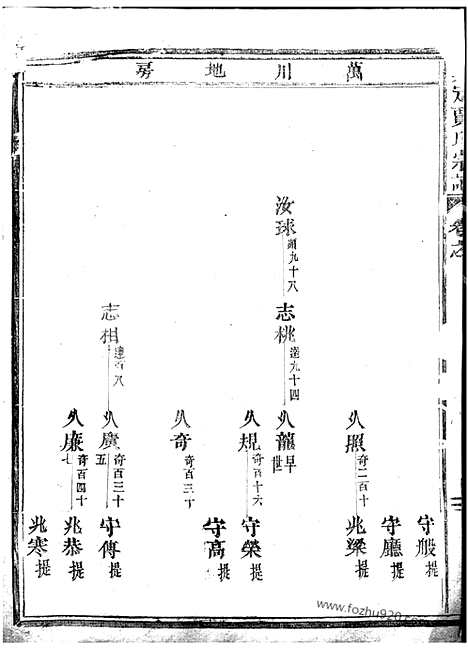 賈氏宗譜 卷之
萬川地房
守般提
守廳提
乆照奇二百十 兆梁提
汝球 九十八 志桃達九十四 乆龍早世
乆規奇百十六 守榮提
守高提
乆奇奇百三
志相達百八 乆廣奇百三十五 守傳提
乆廉奇百四十七 兆恭提
兆寒提
www.fozhu920.com